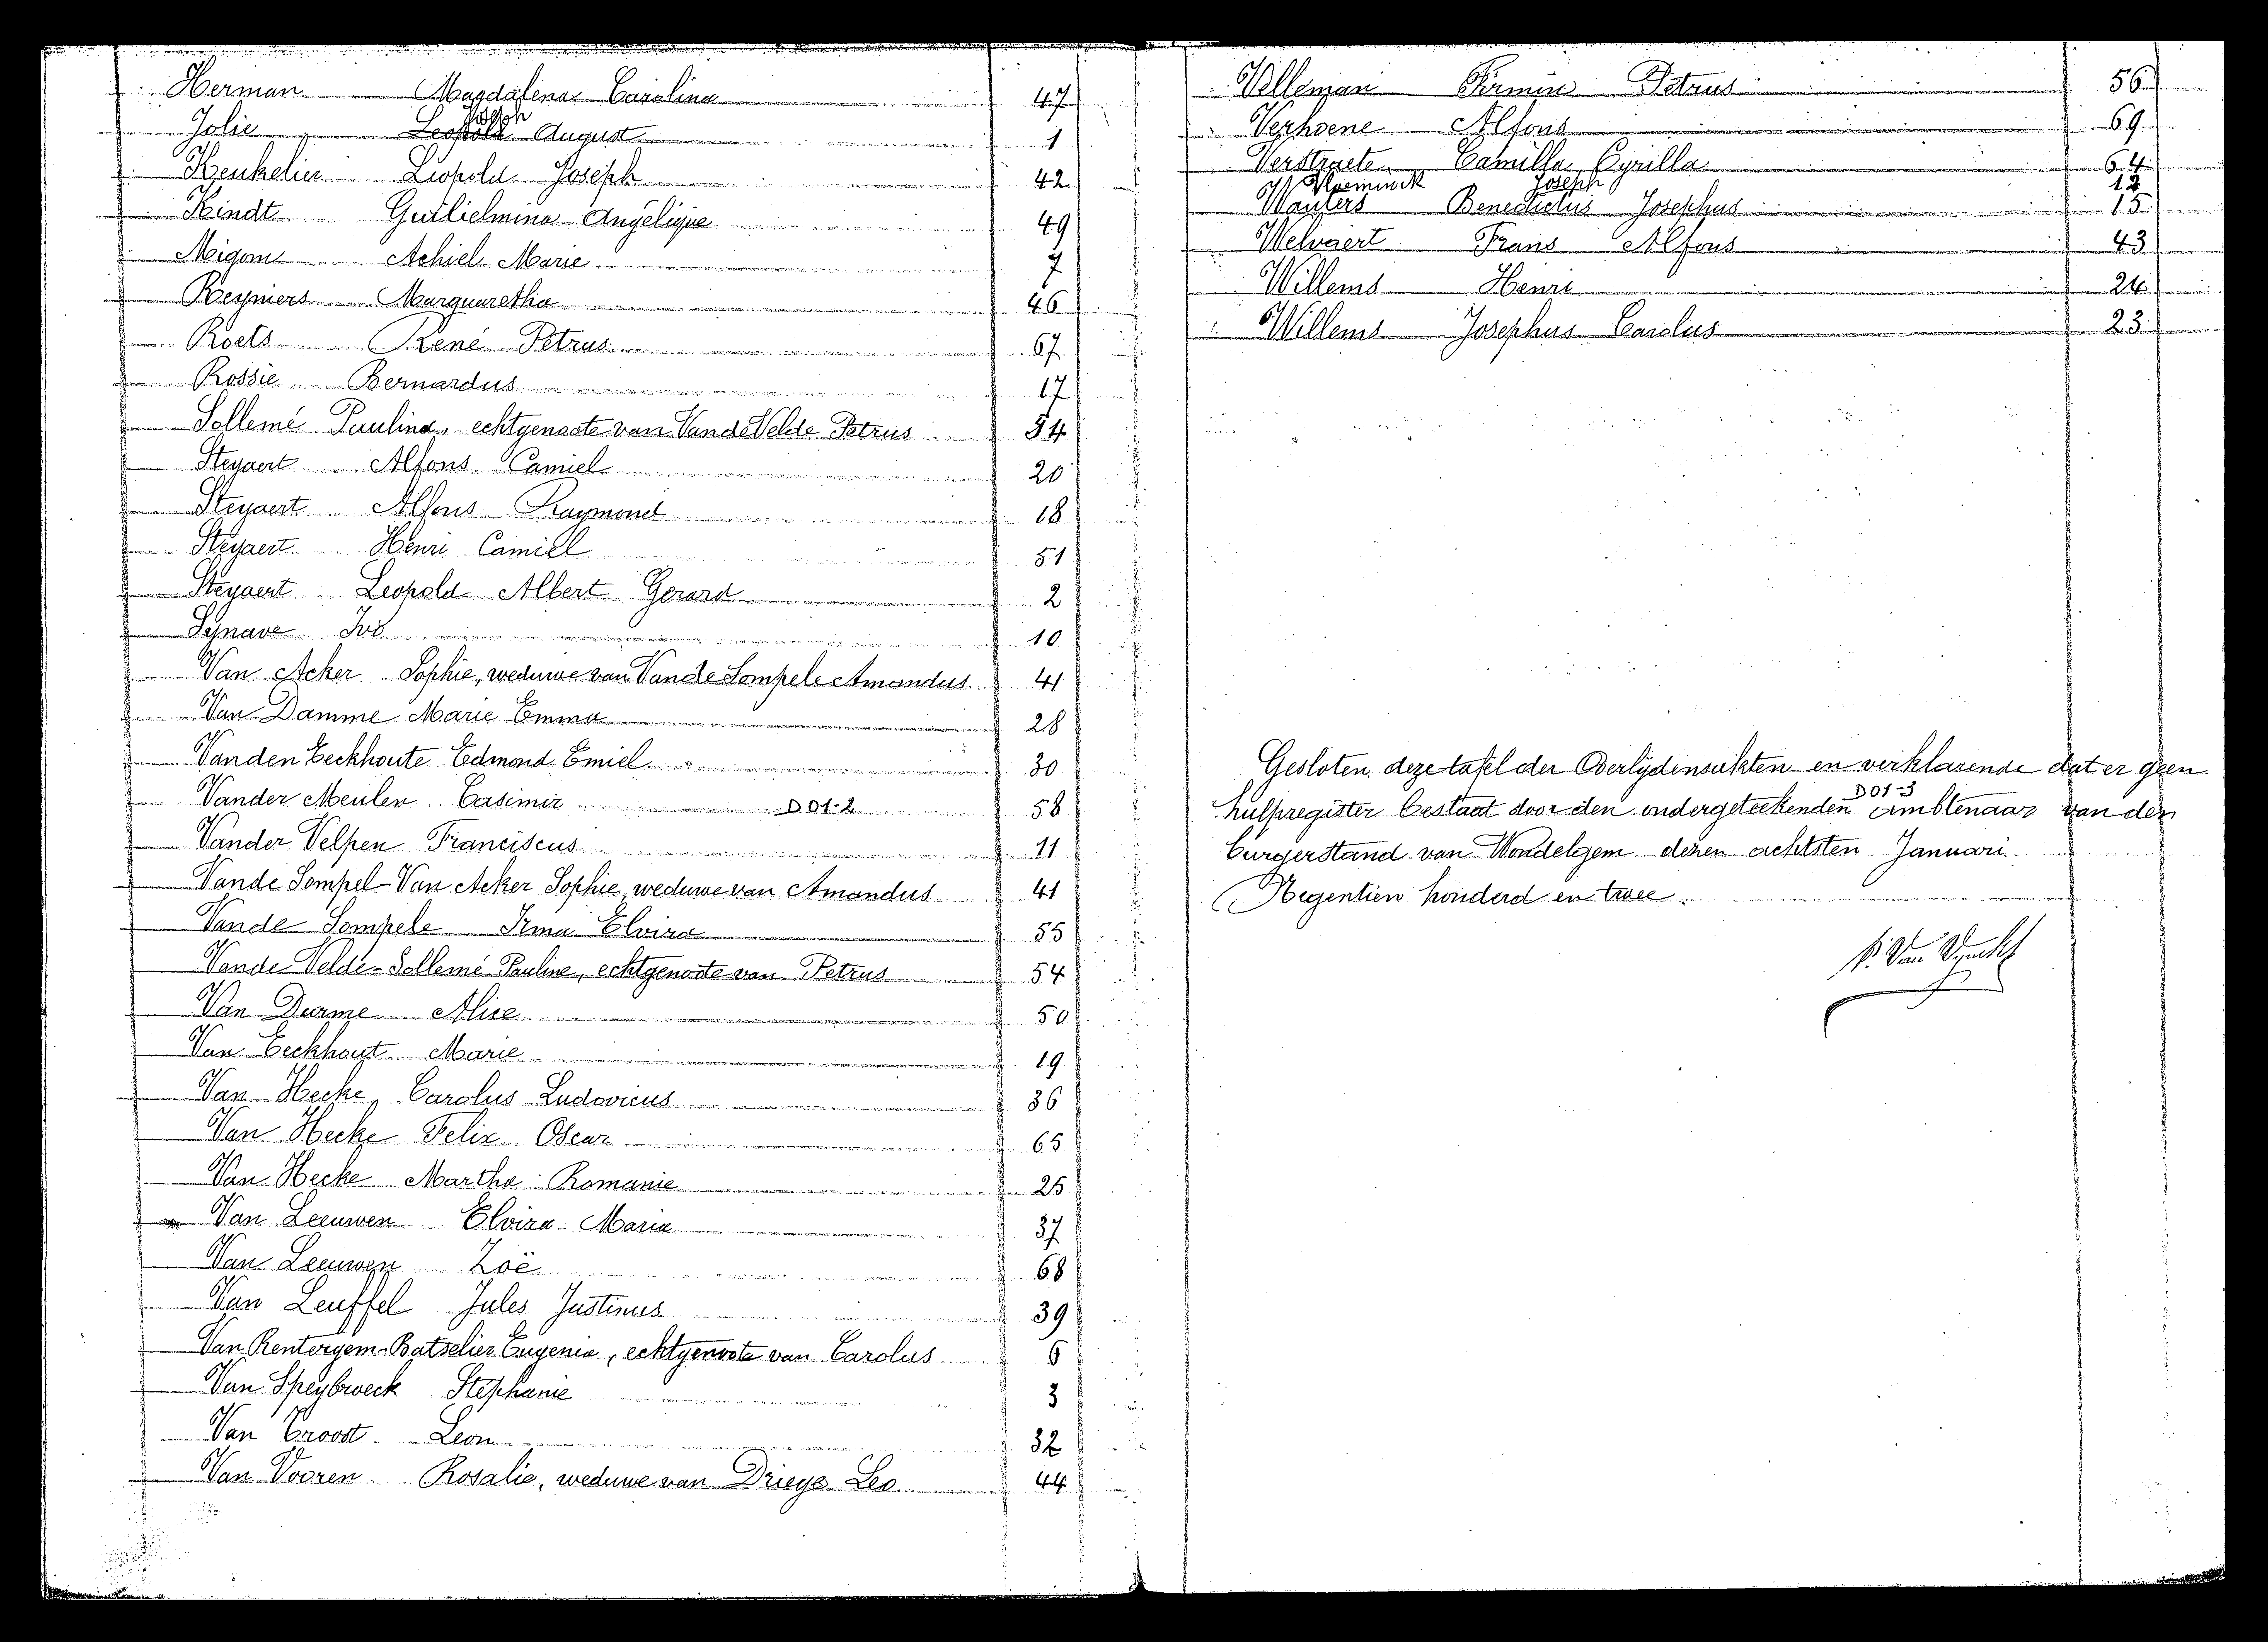 Herman Magdalena Carolina 47
Joseph
Jolie Leopold August 1
Keukelier Leopold Joseph 42
Kindt Guilielmina Angelique 49
Migom Achiel Marie 7
Reyniers Marguaretha 46
Roels René Petrus 67
Rossie Bernardus 17
Sollemé Paulina, echtgenoote van VandeVelde Petrus 54
Steyaert Alfons Camiel 20
Steyaert Alfons Raymond 18
Steyaert Henri Camiel 51
Steyaert Leopold Albert Gerard 2
Synave Ivo 10
Van Acker Sophie, weduwe van Vande Sompele Amandus 41
Van Damme Marie Emma 28
Vanden Eeckhoute Edmond Emiel 30
Vander Meulen Casimir D 01-2 58
Vander Velpen Franciscus 11
Vande Sompel-Van Acker Sophie, weduwe van Amandus 41
Vande Sompele Irma Elvira 55
Vande Velde-Sollemé Pauline, echtgenoote van Petrus 54
Van Durme Alise 50
Van Eeckhout Marie 19
Van Hecke, Carolus Ludovicus 36
Van Hecke Felix Oscar 65
Van Hecke Martha Romanie 25
Van Leeuwen Elvira Maria 37
Van Leeuwen Zoë 68
Van Leuffel Jules Justinus 39
Van Rentergem-Batselier Eugenia, echtgenoote van Carolus 6
Van Speybroeck Stephanie 3
Van Troost Leon 32
Van Vooren Rosalie, weduwe van Driege Leo 44
Velleman Firmin Petrus 56
Verhoene Alfons 69
Verstraete Camilla Cyrilla 64
Vlaeminck Joseph 12
Wauters Benedictus Josephus 15
Welvaert Frans Alfons 43
Willems Henri 24
Willems Josephus Carolus 23
Gesloten deze tafel der Overlijdensakten en verklarende dat er geen
D 01-3
hulpregister bestaat door den ondergeteekenden ambtenaar van den
burgerstand van Wondelgem dezen achtsten Januari
Negentien honderd en twee